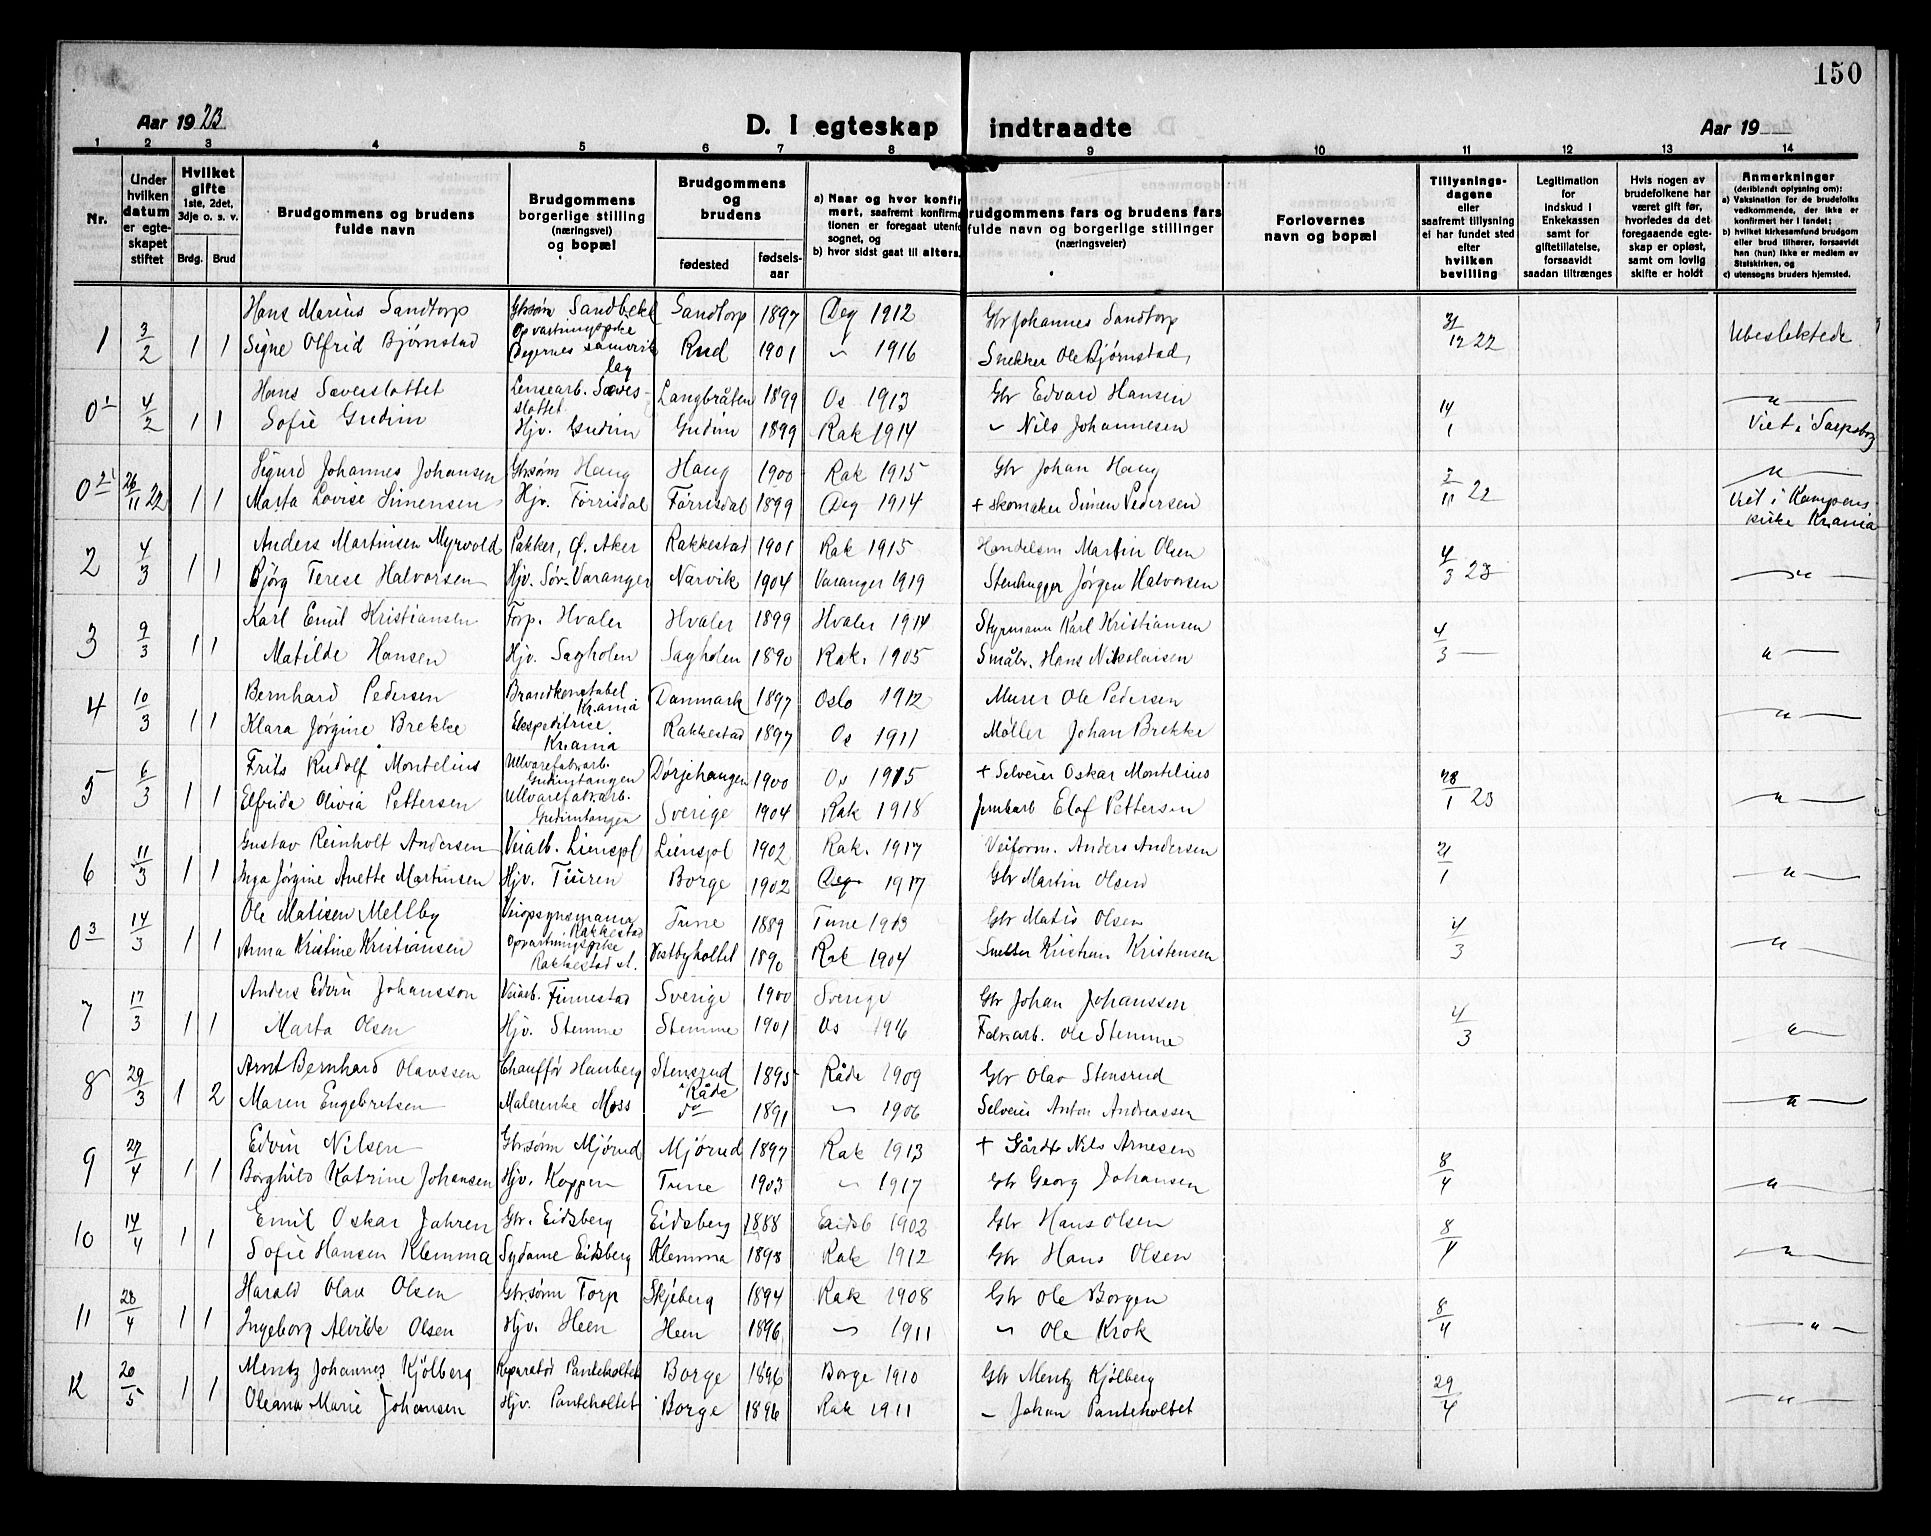 150
Aar 1923
D. I egteskap indtraadte
Aar 19
1 2 3 4 5 6 7 8 9 10 11 12 13 14
Nr.
Under hvilken datum er egteskapet stiftet
Hvilket gifte 1ste, 2det, 3dje o. s. v.
Brdg. Brud
Brudgommens og brudens fulde navn
Brudgommens borgerlige stilling (næringsvei) og bopæl
Brudgommens og brudens
fødested
fødselsaar
a) Naar og hvor konfirmert, saafremt konfirmationen er foregaat utenfor sognet, og
b) hvor sidst gaat til alters.
Brudgommens fars og brudens fars fulde navn og borgerlige stillinger (næringsveier)
Forlovernes navn og bopæl
Tillysningsdagene eller saafremt tillysning ei har fundet sted efter hvilken bevilling
Legitimation for indskud i Enkekassen samt for giftetillatelse, forsaavidt saadan tiltrænges
Hvis nogen av brudefolkene har været gift før, hvorledes da det foregaaende egteskap er opløst, samt om lovlig skifte er holdt
Anmerkninger (deriblandt oplysning om): a) Vaksination for de brudefolks vedkommende, der ikke er konfirmert her i landet; b) hvilket kirkesamfund brudgom eller brud tilhører, forsaavidt han (hun) ikke er medlem av Statskirken, og c) utensogns bruders hjemsted.
1 3/2 1 1 Hans Marius Sandtorp Gbrsøn Sandbekk Sandtorp 1897 Deg 1912 Gbr Johannes Sandtorp 31/12 22 Ubeslektede
Signe Olfrid Bjørnstad Opvartningspike Degernes samvirkelag Rud 1901 " 1916 Snekker Ole Bjørnstad
0 1 4/2 1 1 Hans Sæveslottet Lensearb. Sæveslottet Langbråten 1899 Os 1913 Gbr Edvard Hansen 14/1 — " —
Sofie Gudim Hjv. Gudim Gudim 1899 Rak 1914 " Nils Johannesen Viet i Sarpsborg
0 2 26/11 22 1 1 Sigurd Johannes Johansen Gbrsøn Haug Haug 1900 Rak 1915 Gbr Johan Haug 2/11 22 — " —
Marta Lovise Simensen Hjv. Førrisdal Førrisdal 1899 Deg 1914 + Skomaker Simen Pedersen Viet i Kampens kirke Krania
2 4/3 1 1 Anders Martinsen Myrvold Pakker, Ø. Aker Rakkestad 1901 Rak 1915 Handelsm Martin Olsen 4/3 23 — " —
Bjørg Terese Halvorsen Hjv. Sør-Varanger Narvik 1904 Varanger 1919 Stenhugger Jørgen Halvorsen
3 9/3 1 1 Karl Emil Kristiansen Torp. Hvaler Hvaler 1899 Hvaler 1914 Styrmann Karl Kristiansen 4/3 — — " —
Matilde Hansen Hjv. Sagholen Sagholen 1890 Rak. 1905 Småbr. Hans Nikolaisen
4 10/3 1 1 Bernhard Pedersen Brandkonstabel Krania Danmark 1897 Oslo 1912 Murer Ole Pedersen — " —
Klara Jørgine Brekke Ekspeditrice. Krania Rakkestad 1897 Os 1911 Møller Johan Brekke
5 6/3 1 1 Frits Rudolf Montelius Ullvarefabarb. Gudimtangen Dørjehaugen 1900 Os 1915 + Selveier Oskar Montelius 28/1 23 — " —
Elfrida Olivia Pettersen Ullvarefabarb. Gudimtangen Sverige 1904 Rak 1918 Jernbarb Elof Pettersen
6 11/3 1 1 Gustav Reinholt Andersen Veiarb. Lienspl Lienspl 1902 Rak. 1917 Veiform. Anders Andersen 21/1 — " —
Inga Jørgine Anette Martinsen Hjv. Turen Borge 1902 Deg 1917 Gbr Martin Olsen
0 3 14/3 1 1 Ole Matisen Mellby Veiopsynsmann Rakkestad Tune 1889 Tune 1903 Gbr Matis Olsen 4/3 — " —
Anna Kristine Kristiansen Opvartningspike Rakkestad st. Vestbyholtet 1890 Rak 1904 Kristensen
7 17/3 1 1 Anders Edvin Johansson Veiarb. Finnestad Sverige 1900 Sverige Gbr Johan Johanssen 4/3 — " —
Marta Olsen Hjv. Stemme Stemme 1901 Os 1916 Fabrarb. Ole Stemme
8 29/3 1 2 Arnt Bernhard Olavssen Chauffør Hauberg Stensrud i Råde 1895 Råde 1909 Gbr Olav Stensrud
Maren Engebretsen Malerenke Moss do 1891 " 1906 Selveier Anton Andreassen — " —
9 27/4 1 1 Edvin Nilsen Gbrsønn Mjørud Mjørud 1897 Rak 1913 + Gårdbr Nils Arnesen 8/4
Borghild Katrine Johansen Hjv. Koppen Tune 1903 " 1917 Gbr Georg Johansen — " —
10 14/4 1 1 Emil Oskar Jahren Gbr. Eidsberg Eidsberg 1888 Eidsb 1902 Gbr Hans Olsen 8/4
Sofie Hansen Klemma Sydame Eidsberg Klemma 1898 Rak 1912 Gbr Hans Olsen — " —
11 28/4 1 1 Harald Olav Olsen Gbrsønn Torp Skjeberg 1894 Rak 1908 Gbr Ole Borgen 8/4
Ingeborg Alvilde Olsen Hjv. Heen Heen 1896 " 1911 " Ole Krok — " —
12 20/5 1 1 Mentz Johannes Kjølberg Reparatør Panteholtet Borge 1896 Borge 1910 Gbr Mentz Kjølberg 29/4
Oleana Marie Johansen Hjv. Panteholtet Borge 1896 Rak 1911 " Johan Panteholtet — " —